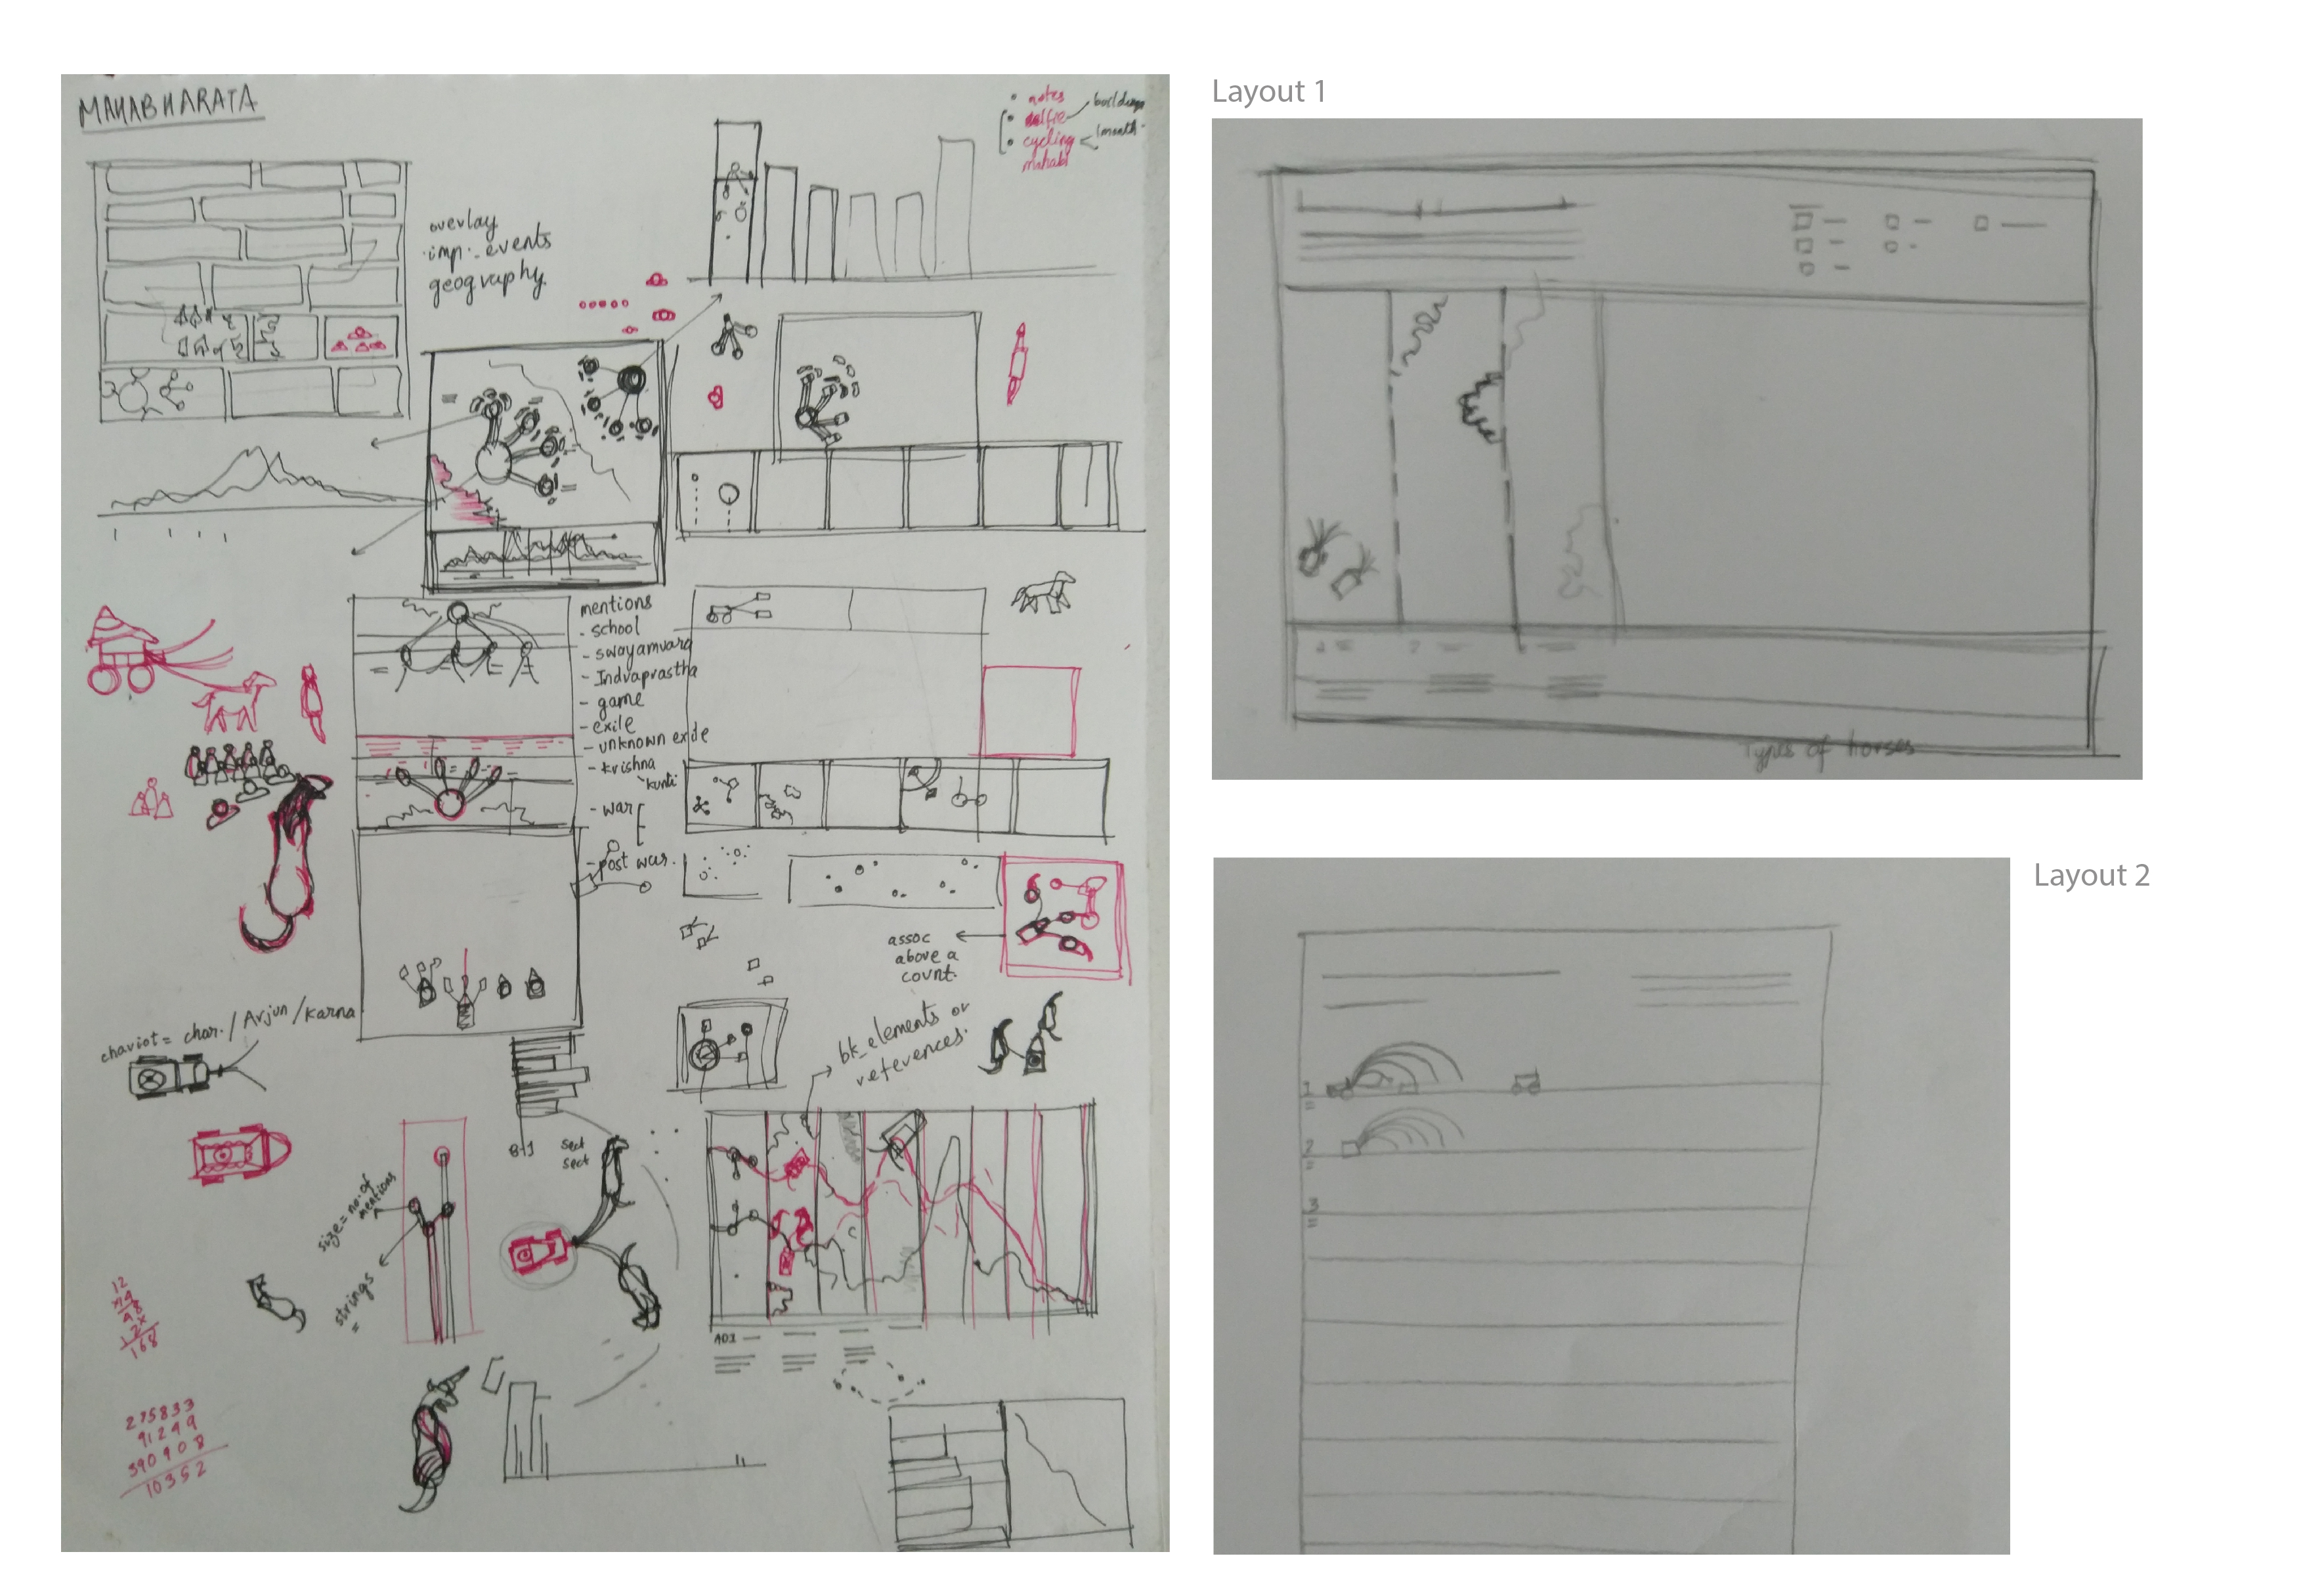 MAHABHARATA
notes
selfie
buildings
cycling
1month
mahab
overlay
imp: events
geography.
mentions
- school
- swayamvara
- Indraprastha
- game
- exile
- unknown exile
- krishna
kunti
- war
- post war.
assoc
above a
count.
chariot = char. / Arjun / Karna
bk_elements or
references.
sect
sect
size = no. of
mentions
strings
=
12
x14
48
12x
168
275833
91249
390908
10352
A01
Layout 1
Types of horses
Layout 2
1
2
3